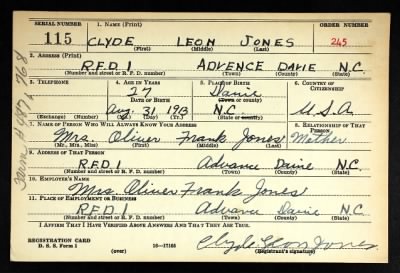 SERIAL NUMBER 1. NAME (Print) ORDER NUMBER
115 CLYDE LEON JONES 245
(First) (Middle) (Last)
2. ADDRESS (Print)
R.F.D. 1 ADVENCE DAVIE N.C.
(Number and street or R. F. D. number) (Town) (County) (State)
3. TELEPHONE 4. AGE IN YEARS 5. PLACE OF BIRTH 6. COUNTRY OF CITIZENSHIP
27 Davie
DATE OF BIRTH (Town or county)
Aug. 31 1913 N.C. U.S.A.
(Exchange) (No.) (Mo.) (Day) (Yr.) (State or country)
7. NAME OF PERSON WHO WILL ALWAYS KNOW YOUR ADDRESS 8. RELATIONSHIP OF THAT PERSON
Mrs. Oliver Frank Jones Mother
(Mr., Mrs., Miss) (First) (Middle) (Last)
9. ADDRESS OF THAT PERSON
R.F.D. 1 Advance Davie N.C.
(Number and street or R. F. D. number) (Town) (County) (State)
10. EMPLOYER'S NAME
Mrs. Oliver Frank Jones
11. PLACE OF EMPLOYMENT OR BUSINESS
R.F.D. 1 Advance Davie N.C.
(Number and street or R. F. D. number) (Town) (County) (State)
I AFFIRM THAT I HAVE VERIFIED ABOVE ANSWERS AND THAT THEY ARE TRUE.
REGISTRATION CARD
D. S. S. Form 1 16-17105 Clyde Leon Jones
(over) (Registrant's signature)